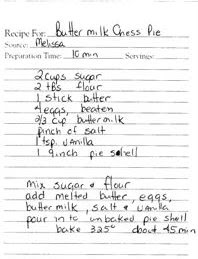 Recipe For: Butter milk Chess Pie
Source: Melissa
Preparation Time: 10 min Servings:
2 cups sugar
2 tbs flour
1 stick butter
4 eggs, beaten
2/3 cup butter milk
pinch of salt
1 tsp. vanilla
1 9 inch pie shell
mix sugar & flour
add melted butter, eggs,
butter milk, salt & vanilla
pour in to unbaked pie shell
bake 325° about 45 min